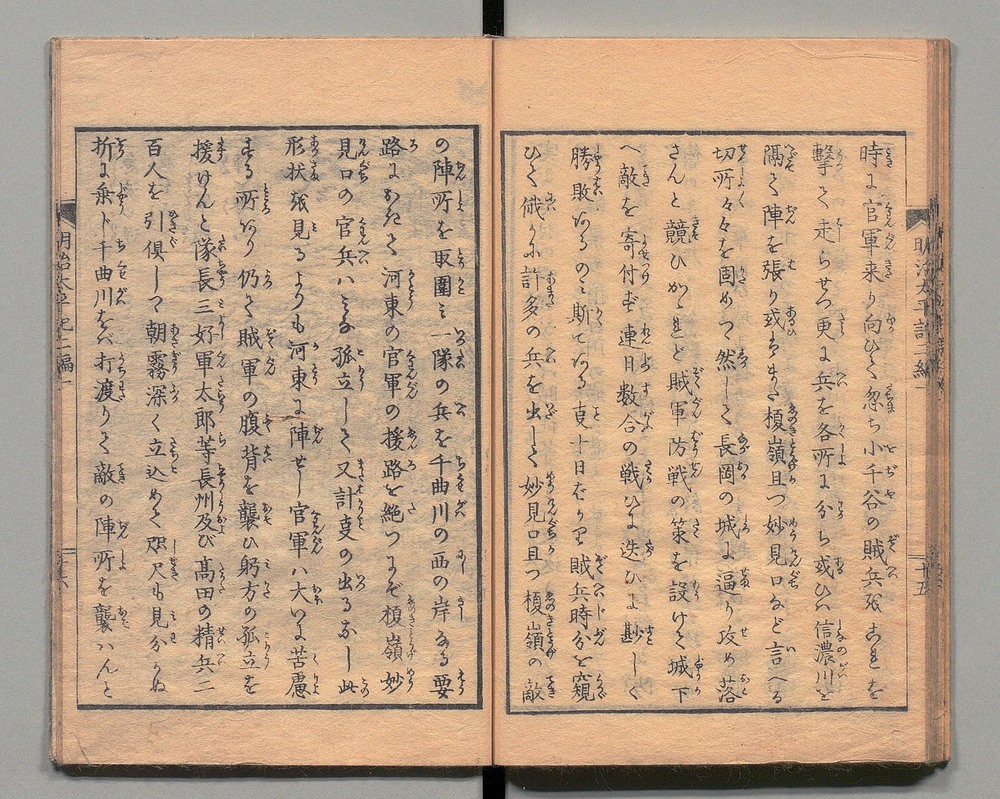 時に官軍来り向ひて忽ち小千谷の賊兵を
撃て走らせつ更に兵を各所に分ち或ひハ信濃川を
隔て陣を張り或ひハ又榎嶺且つ妙見口など言へる
切所々々を固めつ然して長岡の城に逼り攻め落
さんと競ひかゝれど賊軍防戦の策を設けて城下
へ敵を寄付ず連日数合の戦ひに迭ひに尠しく
勝敗あるのミ斯てある叓十日をかり賊兵時分を窺
ひて俄に許多の兵を出して妙見口且つ榎嶺の敵
の陣所を取囲ミ一隊の兵を千曲川の西の岸なる要
路におきて河東の官軍の援路を絶つにぞ榎嶺妙
見口の官兵ハミな孤立して又計叓の出るなし此
形状を見るよりも河東に陣せし官軍ハ大いに苦慮
する所あり仍て賊軍の腹背を襲ひ躬方の孤立を
援けんと隊長三好軍太郎等長州及び髙田の精兵二
百人を引倶しつ朝霧深く立込めて咫尺も見分かぬ
折に乗ト千曲川をバ打渡りて敵の陣所を襲ハんと
明治太平記二編一